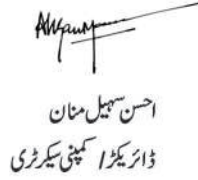 احسن سہیل منان
ڈائریکٹر / کمپنی سیکرٹری